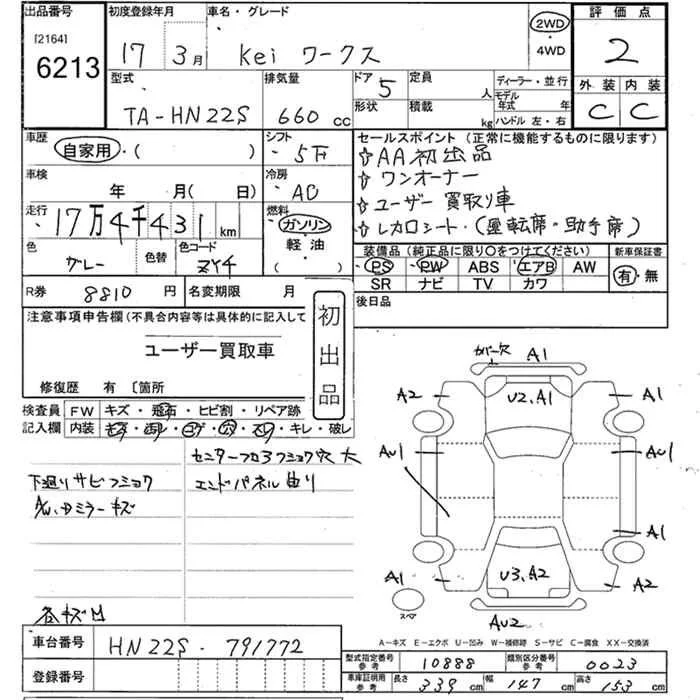 出品番号 初度登録年月 車名・グレード 2WD 評価点
[2164]
6213 17 3月 Kei ワークス ・4WD 2
型式 排気量 ドア 5 定員 人 ディーラー・並行 外装 内装
TA-HN22S 660 cc 形状 積載 kg モデル年式 年 ハンドル 左・右 C C
車歴 自家用・( ) シフト ・5F セールスポイント(正常に機能するものに限ります)
☆AA初出品
車検 年 月(日) 冷房 ・AC ☆ワンオーナー
☆ユーザー買取り車
走行 ・17万4千431km 燃料 ガソリン ☆レカロシート・(運転席・助手席)
軽油・( )
色 グレー 色替 色コード ZY4 装備品(純正品に限り○をつけてください) 新車保証書
PS PW ABS エアB AW 有・無
SR ナビ TV カワ
R券 8810 円 名変期限 月 後日品
注意事項申告欄(不具合内容等は具体的に記入して 初出品
ユーザー買取車
修復歴 有 〔箇所
検査員記入欄 FW キズ・飛石・ヒビ割・リペア跡
内装 キズ・ヨゴレ・コゲ・穴・スレ・キレ・破レ
センターフロアフショク穴大
下廻りサビフショク エンドパネル曲り
A/W・Dミラーキズ
各キズ凹
カバー欠 A1
A2 U2.A1 A1
AU1 A1
A1
A1 U3.A2 A2
スペア AU2
A-キズ E-エクボ U-凹み W-補修跡 S-サビ C-腐食 XX-交換済
車台番号 HN22S-791772
登録番号
型式指定番号参考 10888 類別区分番号参考 0023
車庫証明用参考 長さ 339 cm 幅 147 cm 高さ 153 cm